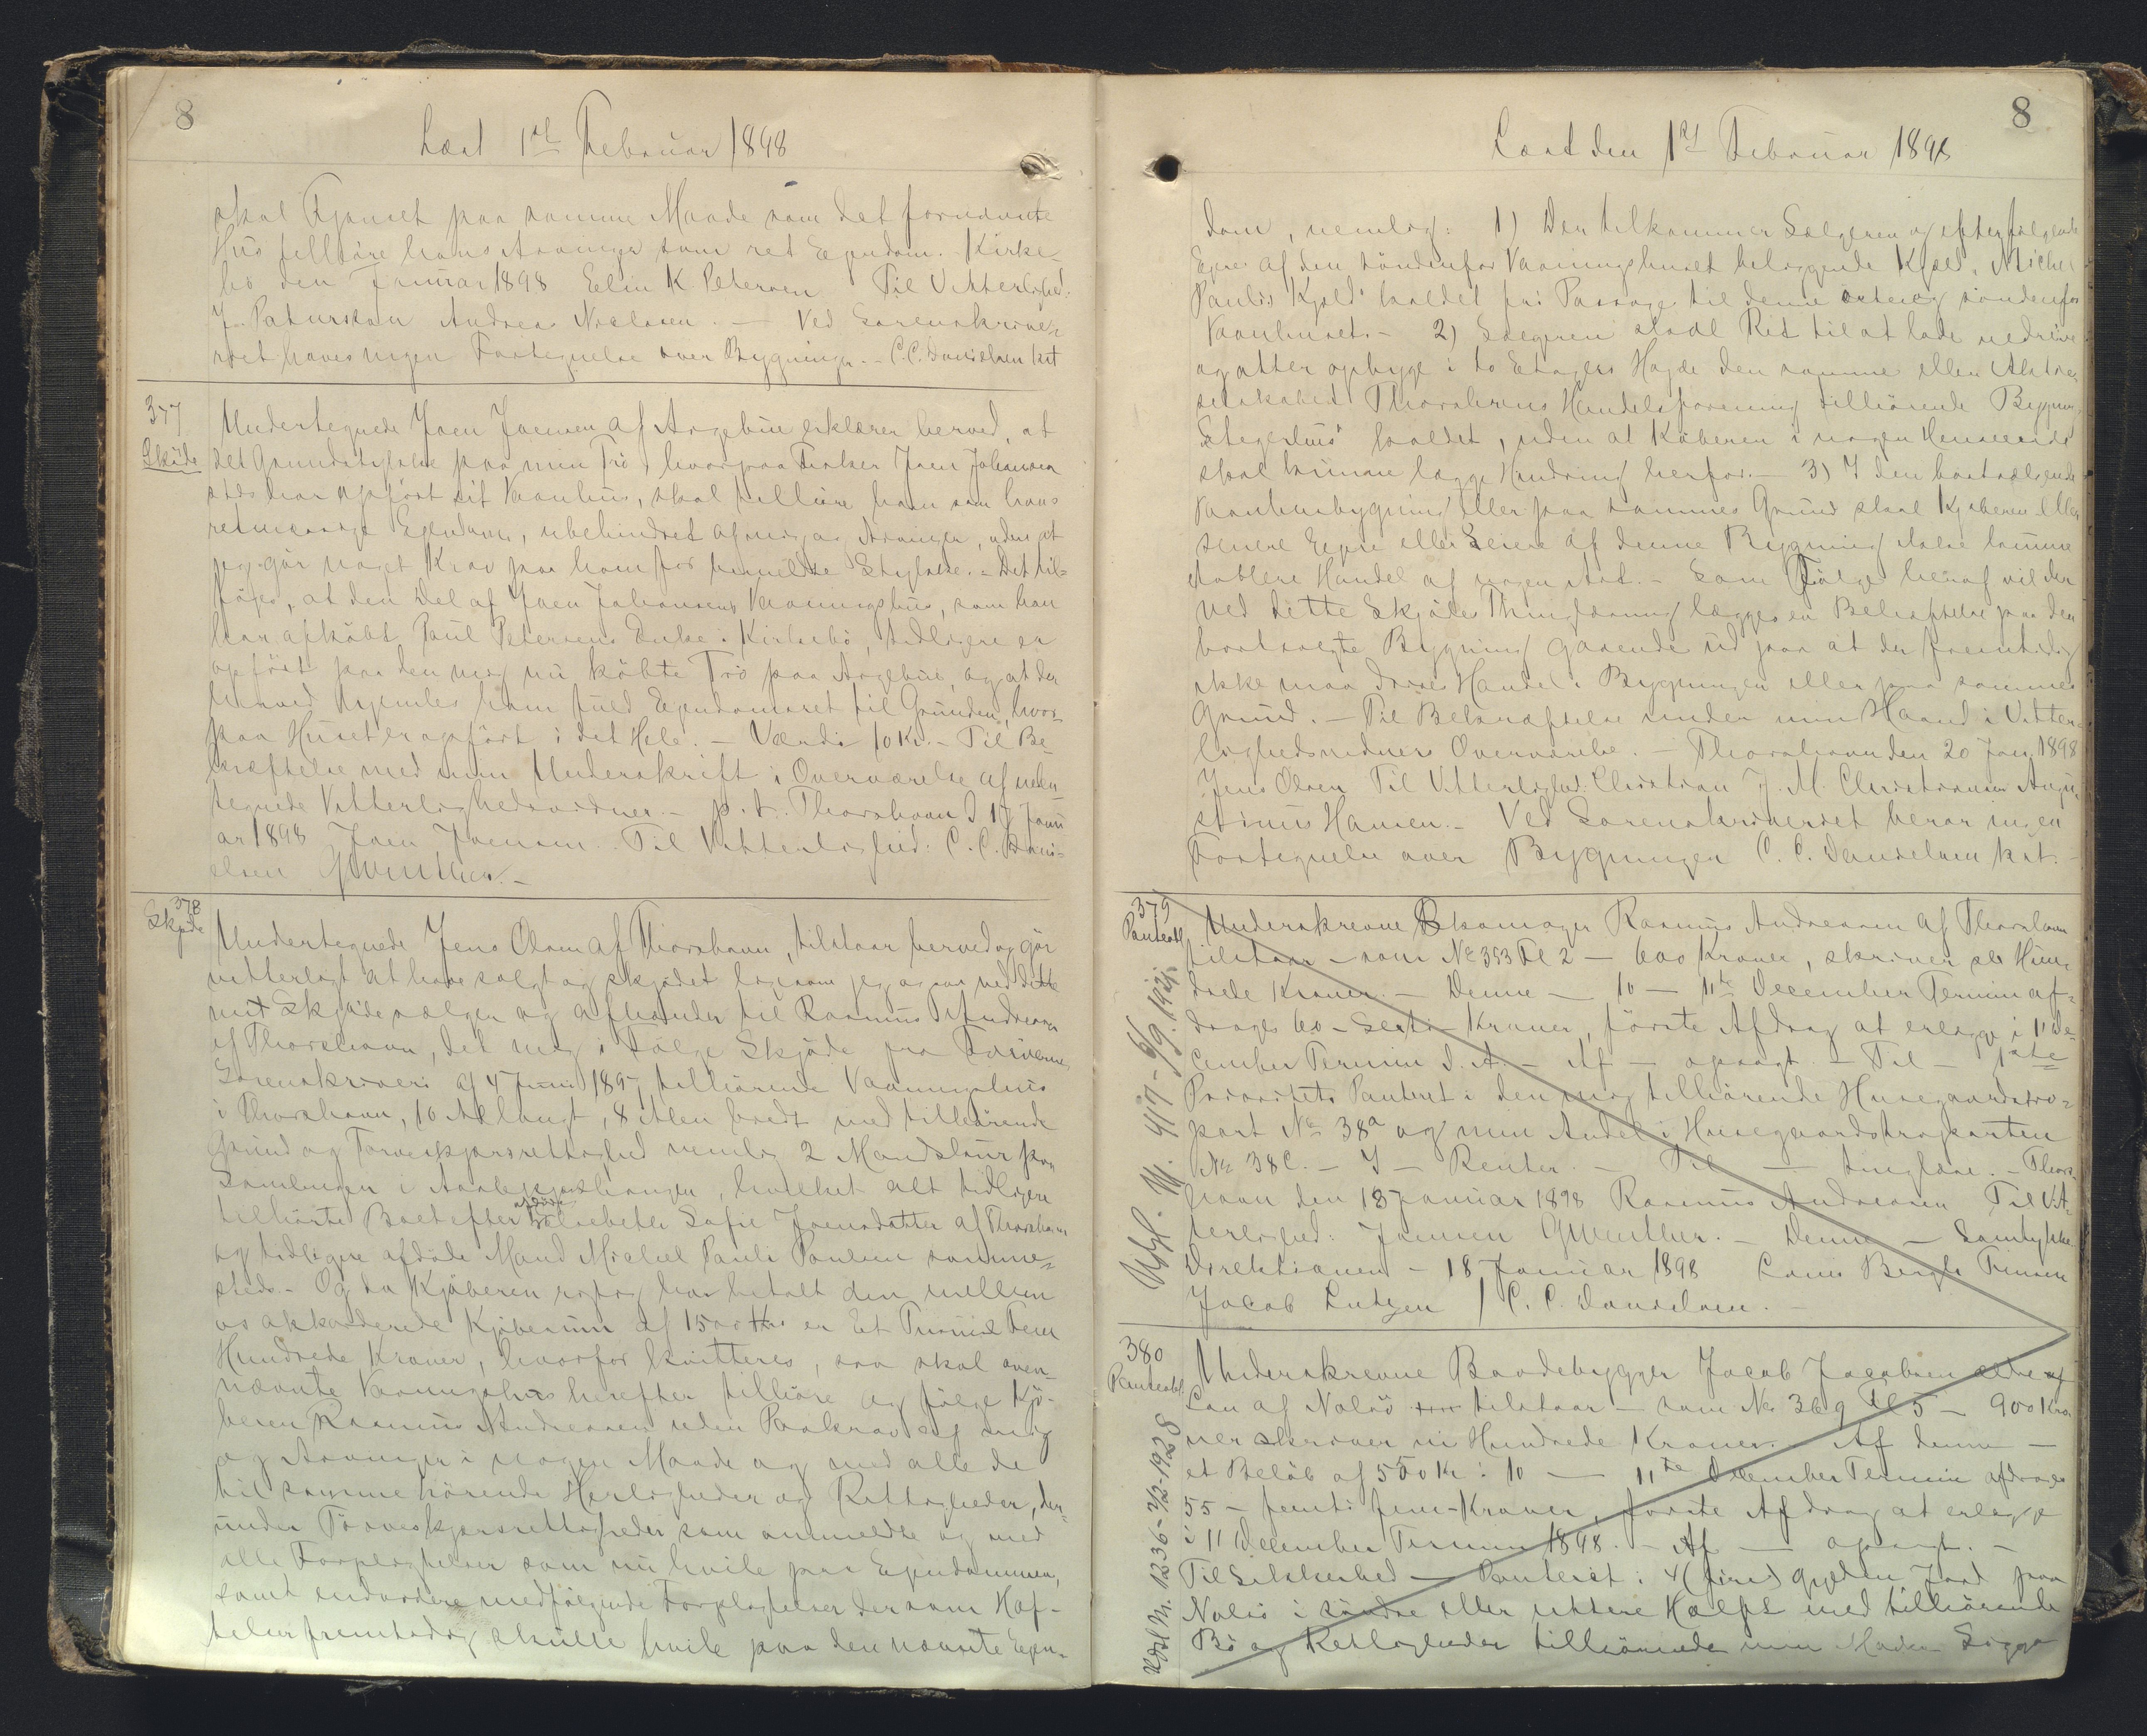 8
Læst 1st Februar 1898
skal Fjøsset paa samme Maade som det fornævnte
Hus tilhøre hans Arvinger som ret Eiendom. - Kirke-
bø den Januar 1898 Elin K Petersen Til Vitterlighed:
J. Patursson Andreas Nielsen. — Ved Sorenskriveri-
et haves ingen Fortegnelse over Bygninger. - C.C. Danielsen kst
377
Skjøde
Undertegnede Joen Joensen af Argebue erklærer herved, at
det Grundstykke paa min Trø, hvorpaa Fisker Joen Johansen
stds har opført sit Vaanhus, skal tilhøre ham som hans
retmæssige Ejendom, ubehindret af mig og Arvinger, uden at
jeg gør noget Krav paa ham for bemeldte Stykke. - Det til-
føjes, at den Del af Joen Johansens Vaaningshus, som han
har afkøbt Paul Petersens Enke i Kirkebø, tidligere er
opført paa den mig nu købte Trø paa Argebue, og at der
herved hjemles ham fuld Ejendomsret til Grunden, hvor-
paa Huset er opført i det Hele. - Værdi 10 Kr. - Til Be-
kræftelse med min Underskrift i Overværelse af under-
tegnede Vitterlighedsvidner. - p.t. Thorshavn d 17 Janu
ar 1898 Joen Joensen. Til Vitterlighed: C.C. Dani-
elsen GWinther. -
378
Skjøde
Undertegnede Jens Olsen af Thorshavn, tilstaar herved og gør
vitterligt at have solgt og skjødet ligesom jeg ogsaa ved dette
mit Skjøde sælger og afhænder til Rasmus Andreasen
af Thorshavn, det mig i Følge Skjøde fra Færøernes
Sorenskriveri af 4 Juni 1897 tilhørende Vaaningshus
i Thorshavn, 10 Al langt, 8 Alen bredt med tilhørende
Grund og Torveskjærsrettighed nemlig 2 Mandslaur paa
i hvilket alt tidligere
tilhørte Boet efter afdøde Elsebeth Sofie Joensdatter af Thorshavn
og tidligere afdøde Mand Michel Pauli Poulsen samme-
steds. - Og da Kjøberen har betalt den mellem
os akkorderede Kjøbesum af 1500 Kr er Et Tusind Fem
Hundrede Kroner, hvorfor kvitteres, saa skal oven-
nævnte Vaaningshus herefter tilhøre og følge Kjø-
beren Rasmus Andreasen uden Paakrav af mig
og Arvinger i nogen Maade og med alle de
til samme hørende Herligheder og Rettigheder, der-
under Torveskjærsrettigheder som anmeldte og med
alle Forpligtelser som nu hvile paa Ejendommen,
samt endvidere medfølgende Forpligtelser der som Hæf-
telser fremtidig skulle hvile paa den nævnte Ejen-
8
Læst den 1st Februar 1898
dom, nemlig: 1) Der tilkommer Sælgeren og efterfølgende
Ejere af den søndenfor Vaaningshuset beliggende Kjæld, "Michel
Paulis Kjæld" kaldet fri Passage til denne østen og søndenfor
Vaanhuset. - 2) Sælgeren skal Ret til at lade nedrive
og atter opbygge i to Etagers Højde den samme eller Aktie-
selskabet Thorshavns Handelsforening tilhørende Bygning
"Stegerhus" kaldet, uden at Køberen i nogen Henseende
skal kunne lægge Hindring herfor. - 3) I den bortsælgende
Vaanhusbygning eller paa sammes Grund skal Kjøberen eller
senere Ejere eller Lejere af denne Bygning ikke kunne
etablere Handel af nogen Art. - Som Følge heraf vil der
ved dette Skjødes Thinglæsning lægges en Behæftelse paa den
bortsolgte Bygning gaaende ud paa at der fremtidig
ikke maa drives Handel i Bygningen eller paa sammes
Grund. - Til Bekræftelse under min Haand i Vitter-
lighedsvidners Overværelse. - Thorshavn den 20 Jan 1898
Jens Olsen Til Vitterlighed: Christian J. M. Christiansen Augu-
stinus Hansen. - Ved Sorenskriveriet beror ingen
Fortegnelse over Bygninger C. C. Danielsen kst. -
379
Panteobl
Underskrevne Skomager Rasmus Andreasen af Thorshavn
tilstaar - som No 353 Fl 2 - 600 Kroner, skriver sex Hun-
drede Kroner. - Denne - 10 - 11te December Termin af-
drages 60 - Sexti - Kroner, første Afdrag at erlægge i 11 De-
cember Termin d. A. - Af - opsagt. - Til - 1ste
Prioritets Panteret i den mig tilhørende Husegaardstro-
part No 38a og min Andel i Husegaardstroparten
No 38c. - I - Renter. - Til - tinglæse. - Thors-
havn den 18 Januar 1898 Rasmus Andreasen Til Vit-
terlighed: Joensen GWinther. - Denne - Samtykke
Direktionen - 18 Januar 1898 Louis Bergh Finsen
Jacob Lutzen / C. C. Danielsen. -
Udsl. M. 417 - 6/9. 1921.
380
Panteobl.
Underskrevne Baadebygger Jacob Jacobsen
af Nolsø tilstaar - som No 369 Fl 5 - 900 Kro
ner skriver ni Hundrede Kroner. Af denne -
et Beløb af 550 Kr: 10 - 11te December Termin afdrages
55 - femti fem - Kroner, første Afdrag at erlægge
i 11 December Termin 1898. - Af - opsagt. -
Til Sikkerhed - Panteret i 4 (fire) Gylden Jord paa
Nolsø i søndre eller yttere Halft med tilhørende
Bø og Rettigheder tilhørende min Moder Sigga
Udsl. M. 1236 - 2/2 - 1928